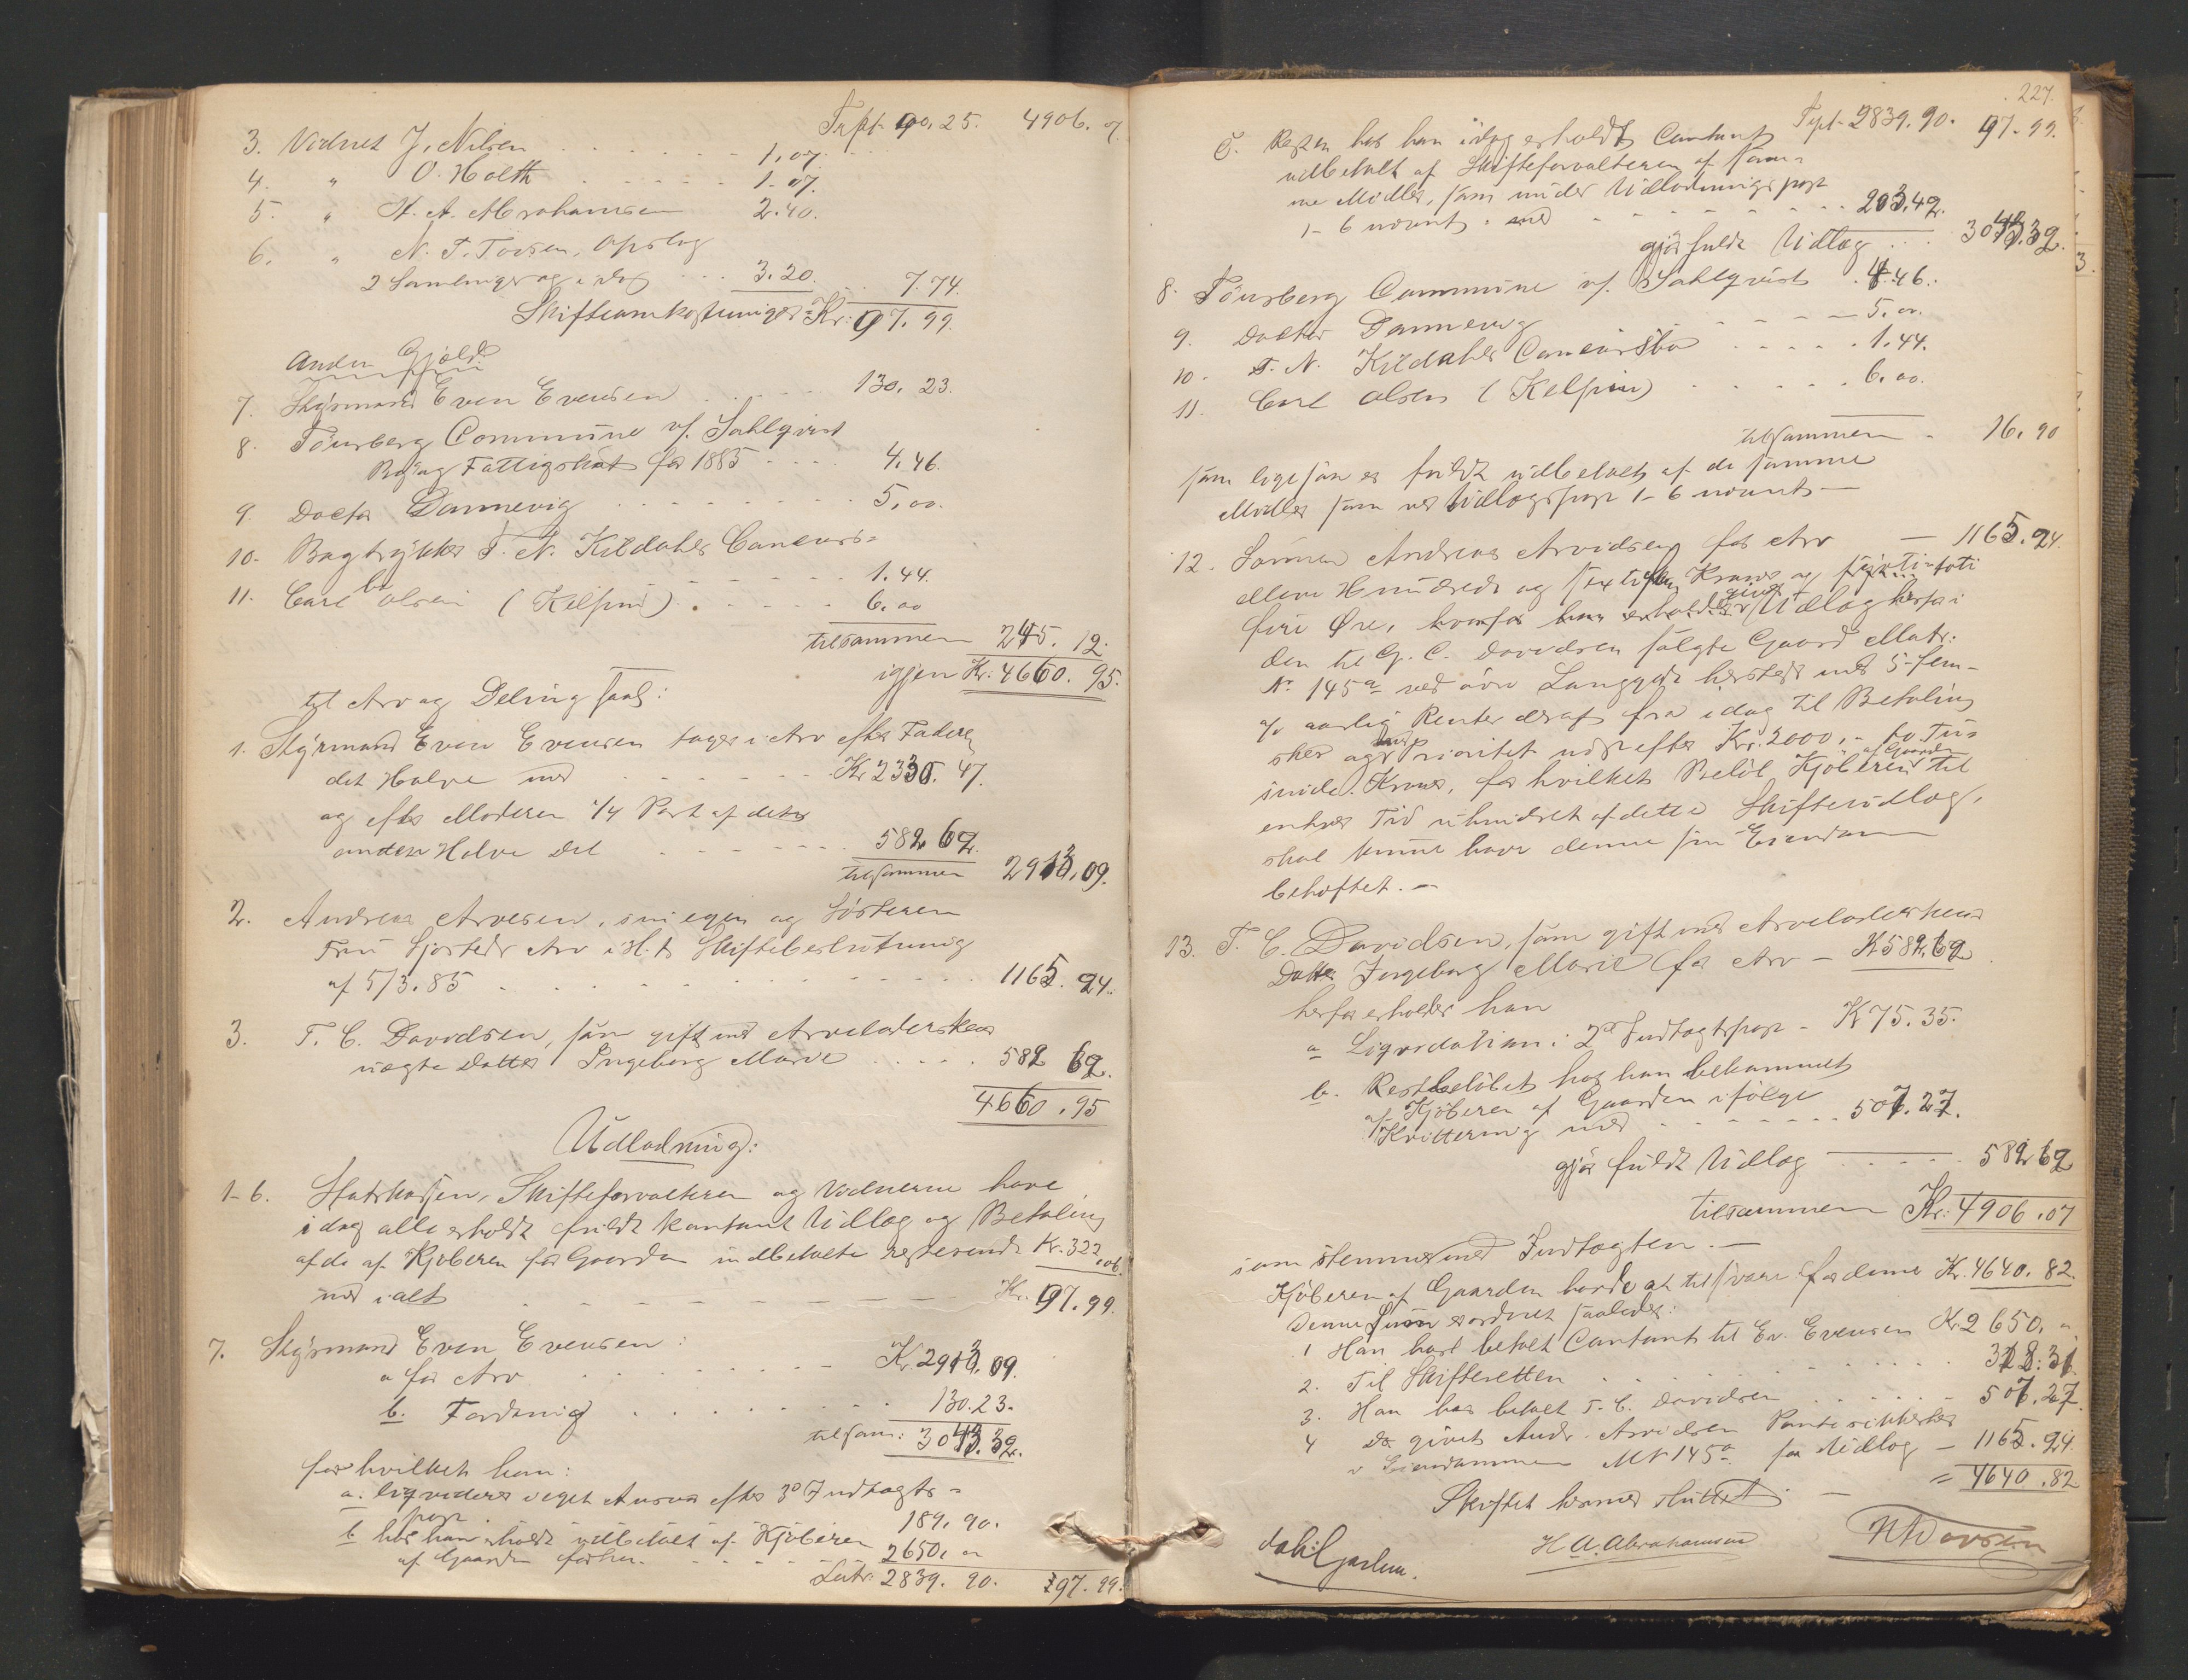 Trpt. 90,25. 4906. 07
3. Vidnet J. Nilsen . . . 1,07.
4. " O. Holth . . . 1.07.
5. " H. A. Abrahamsen 2.40.
6. " N. T. Tovsen, Opslag
2 Samlinger og idag . . . 3.20. . . 7.74.
Skifteomkostninger = Kr: 97. 99.
Anden Gjæld:
7. Styrmand Even Evensen . . . 130. 23.
8. Tönsberg Commune v/. Sahlqvist
By og Fattigskat for 1885 . . . 4.46.
9. Doctor Dannevig . . . 5,00.
10. Bogtrykker T. N. Kildahls Concurs=
bo . . . 1.44.
11. Carl Olsen (Kelpin) . . . 6.00
tilsammen 245. 12.
igjen Kr. 4660. 95.
til Arv og Deling saal:
1. Styrmand Even Evensen tager i Arv efter Faderen
det Halve med . . . Kr 2330. 47.
og efter Moderen 1/4 Part af det
anden Halve Del . . . 582 62.
tilsammen 2913.09.
2. Andreas Arvesen, sin egen og Sösteren
Fru Sjöstedts Arv i H. t. Skiftebeslutning
af 5/3.85 . . . 1165. 24.
3. T. C. Davidsen, som gift med Arveladerskens
uægte Datter Ingeborg Marie . . . 582 62.
4660.95
Udlodning:
1-6. Statskassen, Skifteforvalteren og Vidnerne have
idag alle erholdt fuldt kontant Udlæg og Betaling
af de af Kjöberen for Gaarden indbetalte resterende Kr. 322,06.
med ialt . . . Kr. 97.99.
7. Styrmand Even Evensen:
a for Arv . . . Kr. 2913.09.
b. Fordring . . . 130.23.
tilsam: 3043.32.
for hvilket han:
a. liqviderer eget Ansvar efter 3de Indtægts=
post . . . 189. 90.
b har han erholdt udbetalt af Kjöberen
af Gaarden forhen . . . 2650. 00
Latr. 2839. 90. 97. 99.
227.
Trpt. 2839. 90. 97. 99.
c. Resten har han idag erholdt Contant
udbetalt af Skifteforvalteren af sam=
me Midler, som under Udlodningspost
1-6 nævnt, med . . . 203.42.
gjör fuldt Udlæg . . . 3043.32.
8. Tönsberg Commune v/. Sahlqvist . 4.46.
9. Doctor Dannevig . . . 5.00.
10. T. N. Kildahls Concursbo . . . 1.44.
11. Carl Olsen (Kelpin) . . . 6.00.
tilsammen - 16. 90
som ligesaa er fuldt udbetalt af de samme
Midler som ved Udlægspost 1-6 nævnt -
12. Sönnen Andreas Arvidsen for Arv - 1165.24.
elleve Hundrede og sexti fem Kroner og
fire Öre, hvorfor han erholder Udlæg herfor i
den til G. C. Davidsen solgte Gaard Matr:
No 145a ved övre Langgade herstedt med 5-fem-
% aarlig Renter deraf fra idag til Betaling
sker og med Prioritet næst efter Kr. 2000.- to Tu=
sinde Kroner, for hvilket Belöb Kjöberen af Gaarden til
enhver Tid uhindret af dette Skifteudlæg,
skal kunne have denne sin Eiendom
behæftet. -
13. T. C. Davidsen, som gift med Arveladerskens
Datter Ingeborg Marie for Arv - K 582.62
herfor erholder han
a Liqvidation i 2de Indtægtspost - K 75.35.
b. Restbelöbet har han bekommet
af Kjöberen af Gaarden ifölge
Kvittering med . . . 507.27.
gjör fuldt Udlæg . . . 582 62
tilsammen Kr: 4906.07
som stemmer med Indtægten. -
Kjöberen af Gaarden havde at tilsvare for denne Kr. 4640. 82.
Denne Sum er ordnet saaledes:
1 Han har betalt Contant til Ev. Evensen Kr 2650. 00
2. Til Skifteretten . . . 318.31.
3. Han har betalt T. C. Davidsen . . . 507.27.
4 Do givet Andr. Arvidsen Pantesikkerhed
i Eiendommen M No 145a for Udlæg - 1165.24.
= 4640.82
Skiftet hermed sluttet. -
H. A. Abrahamsen
N T Tovsen